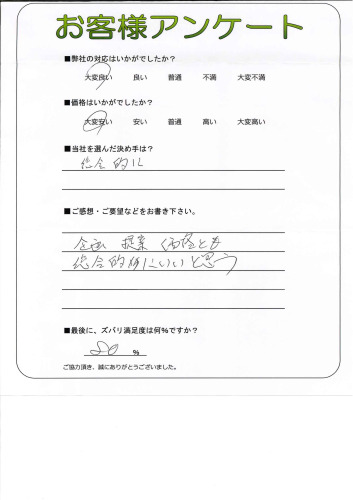 お客様アンケート
■弊社の対応はいかがでしたか？
大変良い 良い 普通 不満 大変不満
■価格はいかがでしたか？
大変安い 安い 普通 高い 大変高い
■当社を選んだ決め手は？
総合的に
■ご感想・ご要望などをお書き下さい。
企画 提案 価格とも
総合的にいいと思う
■最後に、ズバリ満足度は何％ですか？
80 ％
ご協力頂き、誠にありがとうございました。